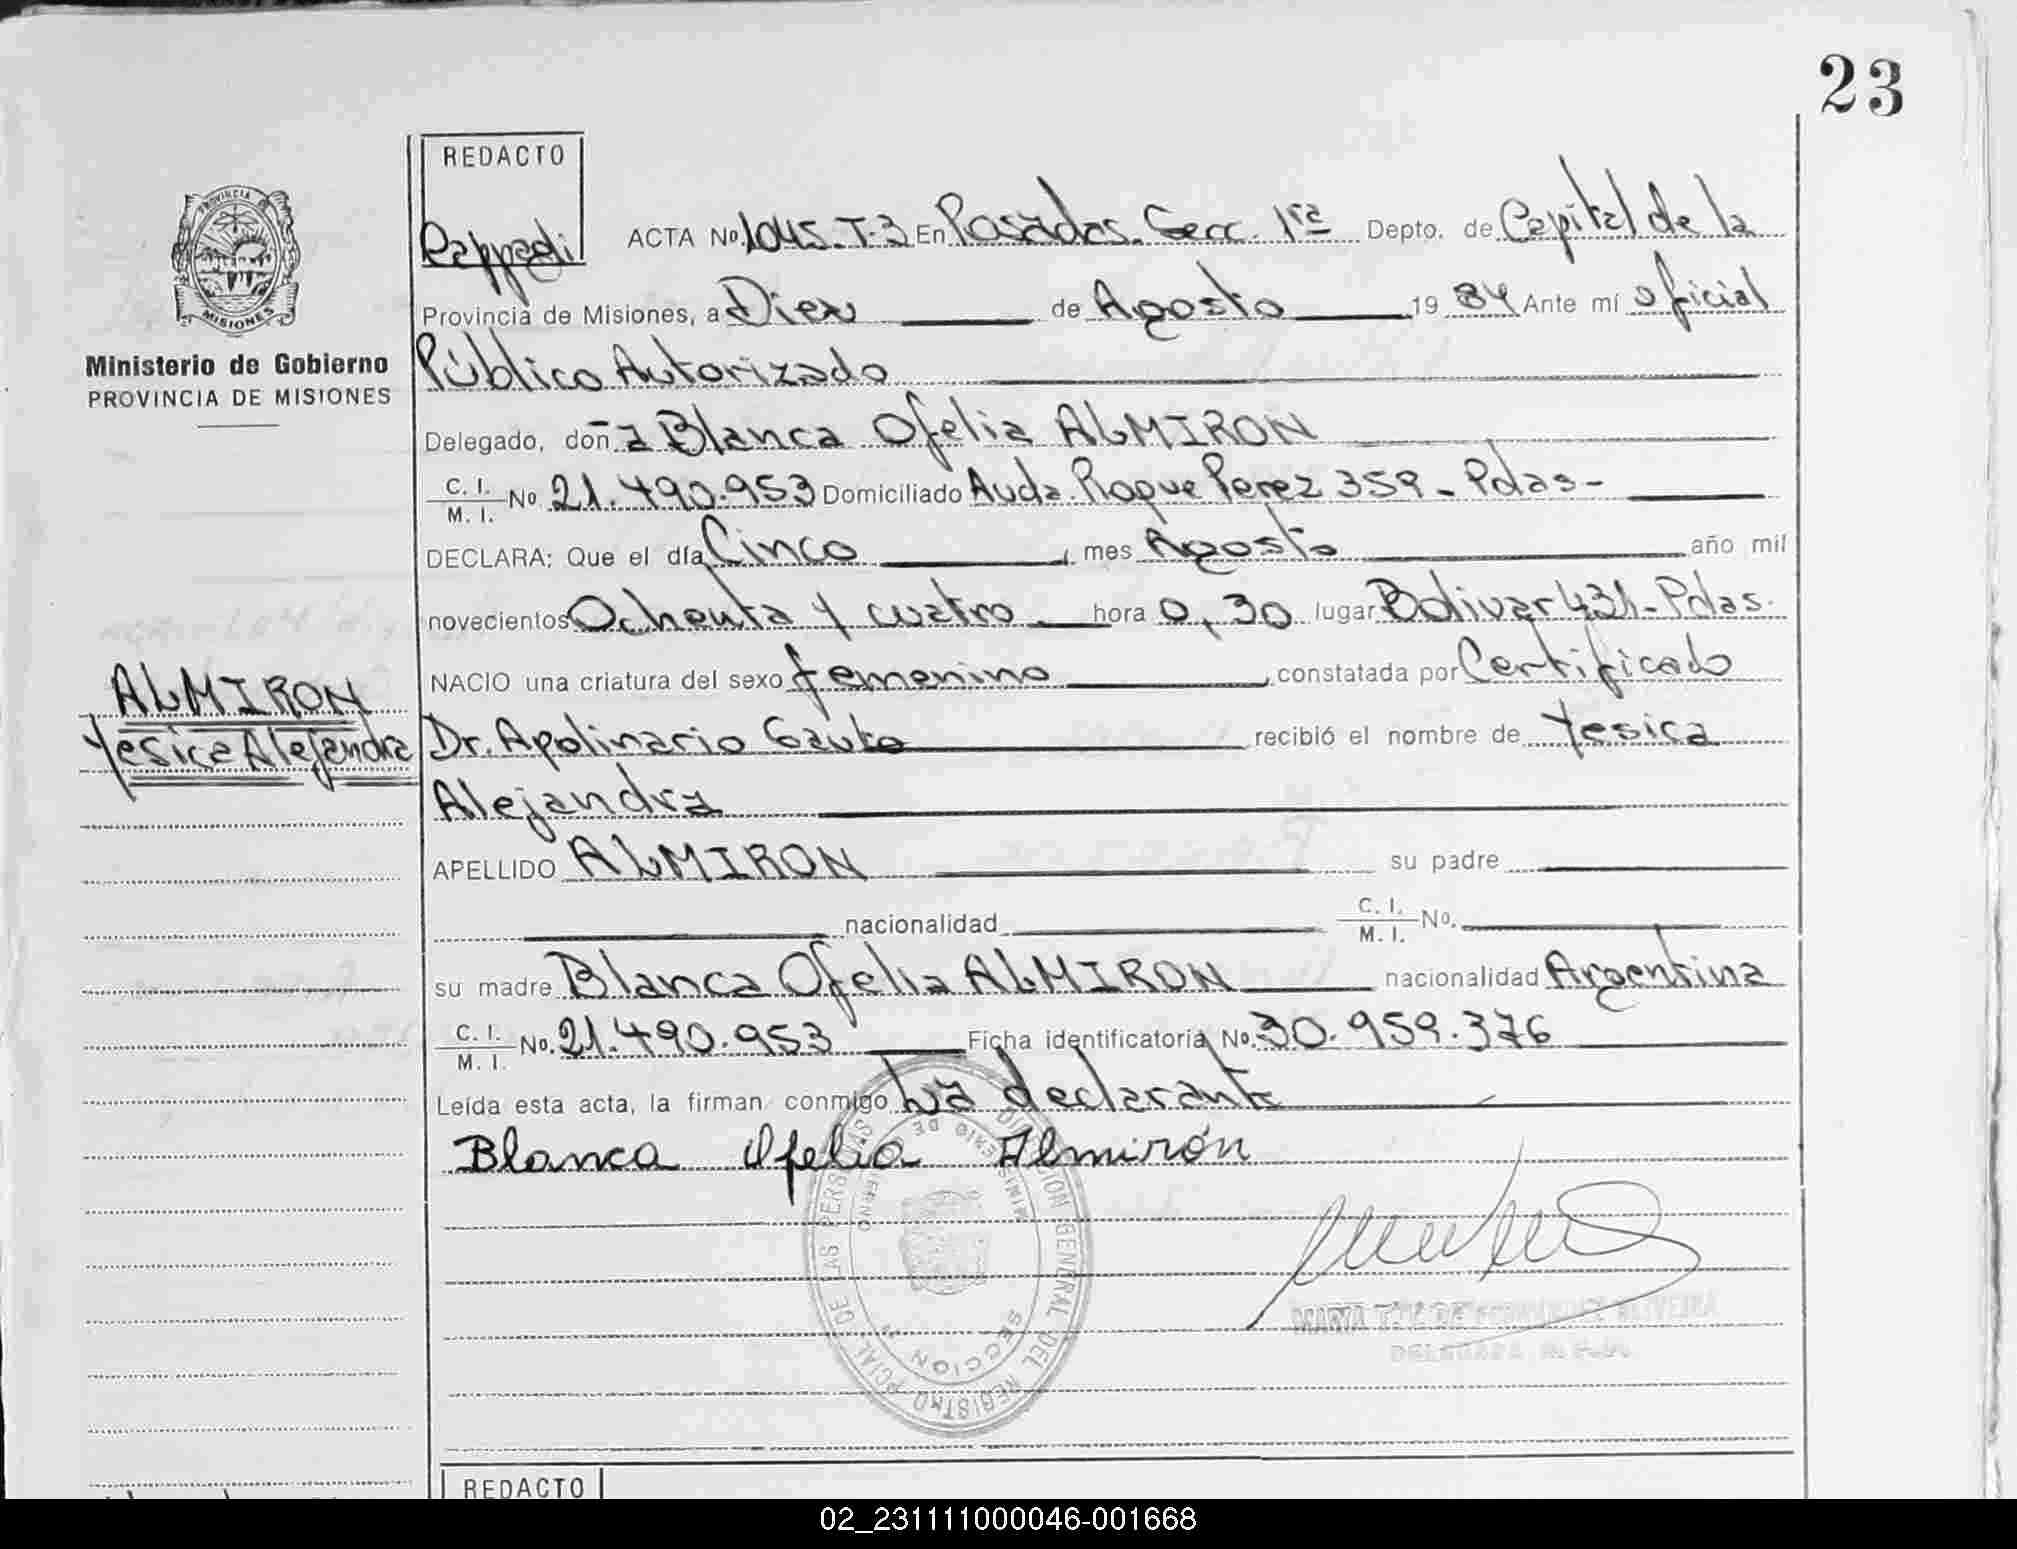 23
REDACTO
Pappadi
PROVINCIA
MISIONES
Ministerio de Gobierno
PROVINCIA DE MISIONES
ACTA Nº 1045-T-3 En Posadas. Secc. 1ra Depto. de Capital de la
Provincia de Misiones, a Diez de Agosto 19 84 Ante mí oficial
Público Autorizado
Delegado, doña Blanca Ofelia ALMIRON
C. I.
M. I. Nº 21.490.953 Domiciliado Avda. Roque Perez 359 - Pdas -
DECLARA: Que el día Cinco, mes Agosto año mil
novecientos Ochenta y cuatro hora 0,30 lugar Bolivar 431 - Pdas.
NACIO una criatura del sexo femenino, constatada por Certificado
ALMIRON
Yesica Alejandra
Dr. Apolinario Gauto recibió el nombre de Yesica
Alejandra
APELLIDO ALMIRON su padre
nacionalidad C. I.
M. I. Nº.
su madre Blanca Ofelia ALMIRON nacionalidad Argentina
C. I.
M. I. Nº. 21.490.953 Ficha identificatoria Nº. 30.959.376
Leída esta acta, la firman conmigo La declarante
Blanca Ofelia Almirón
DIRECCION GENERAL DEL REGISTRO PCIAL DE LAS PERSONAS
MINISTERIO DE GOBIERNO
SECCION
DELEGADA
REDACTO
02_231111000046-001668